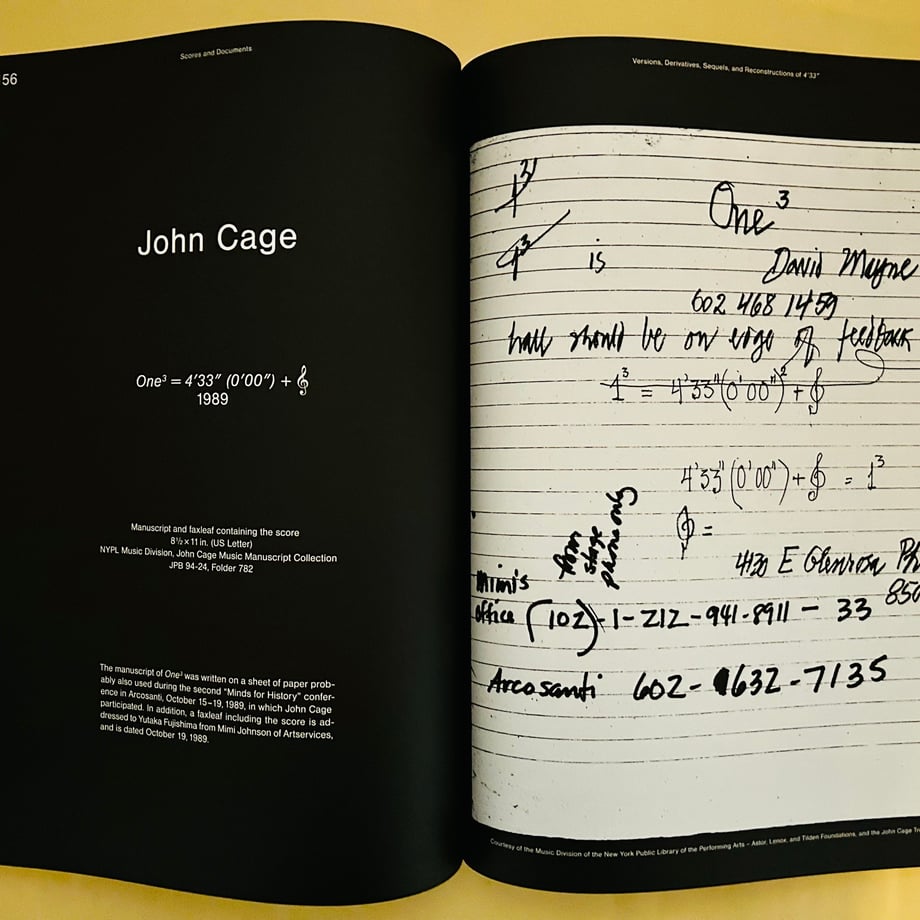 56
Scores and Documents
John Cage
One³ = 4′33″ (0′00″) + 𝄞
1989
Manuscript and faxleaf containing the score
8½ × 11 in. (US Letter)
NYPL Music Division, John Cage Music Manuscript Collection
JPB 94-24, Folder 782
The manuscript of One³ was written on a sheet of paper prob-
ably also used during the second “Minds for History” confer-
ence in Arcosanti, October 15–19, 1989, in which John Cage
participated. In addition, a faxleaf including the score is ad-
dressed to Yutaka Fujishima from Mimi Johnson of Artservices,
and is dated October 19, 1989.
Versions, Derivatives, Sequels, and Reconstructions of 4′33″
1³
One³
is
David Mayne
602 468 1459
hall should be on edge of feedback
1³ = 4′33″(0′00″)² + 𝄞
4′33″(0′00″) + 𝄞 = 1³
𝄞 =
from
stage
phone only
4130 E Glenrosa Ph
850
Mimi's
office (102)-1-212-941-8911 – 33
Arcosanti 602-632-7135
Courtesy of the Music Division of the New York Public Library of the Performing Arts – Astor, Lenox, and Tilden Foundations, and the John Cage Tr